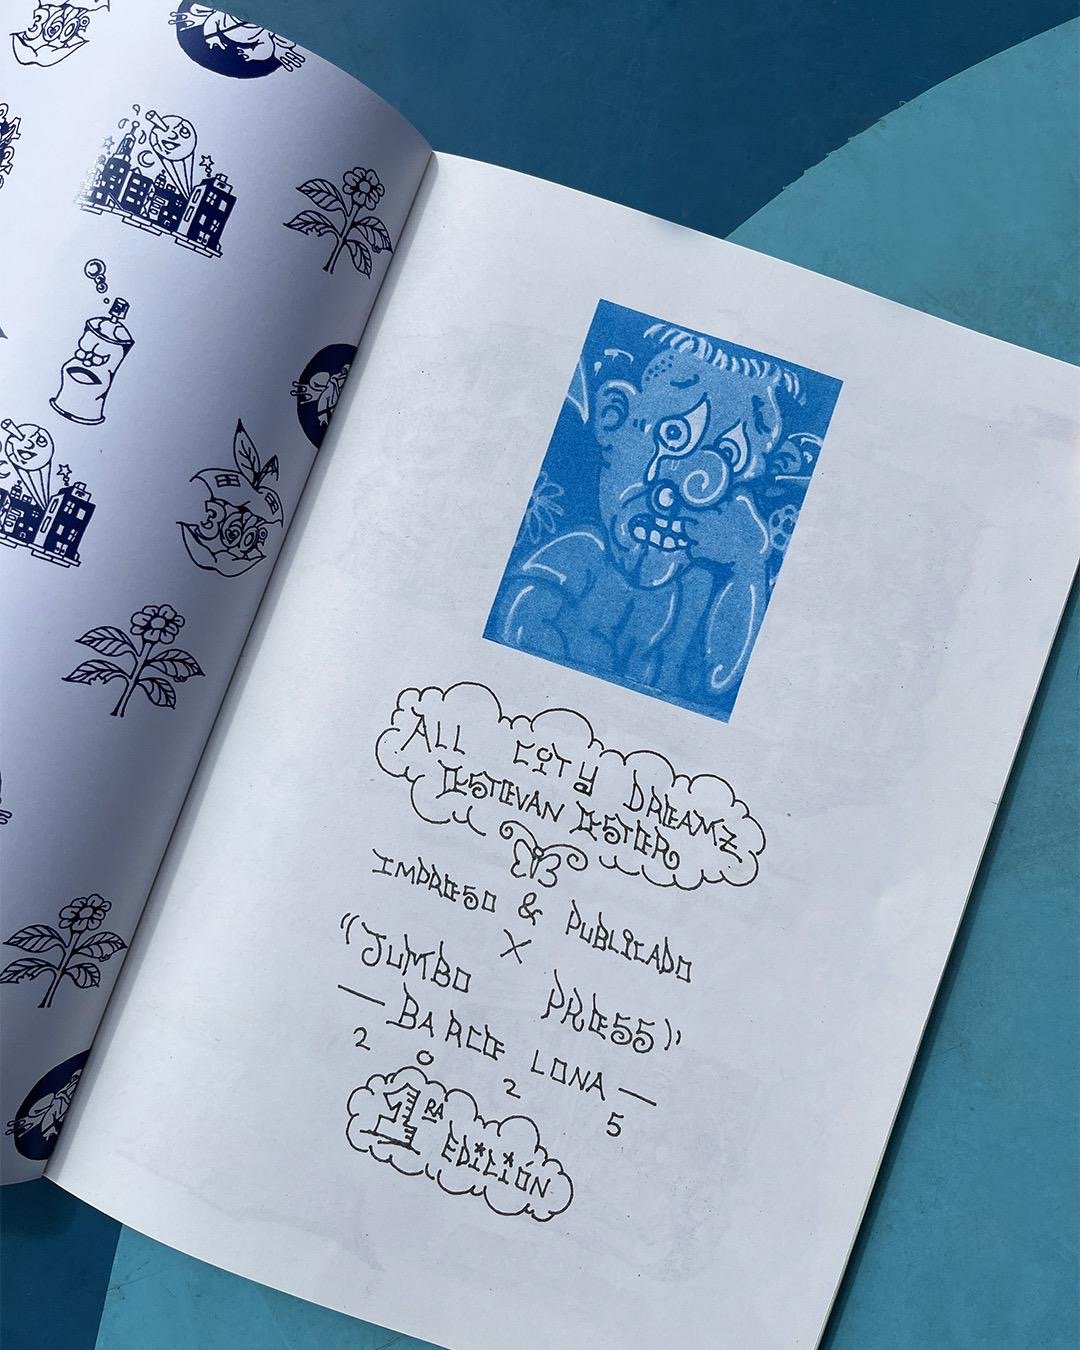 360
360
ALL CITY DREAMZ
ESTEVAN ESTER
IMPRESO & PUBLICADO
X
"JUMBO PRESS"
— BARCELONA —
2025
1RA EDICIÓN